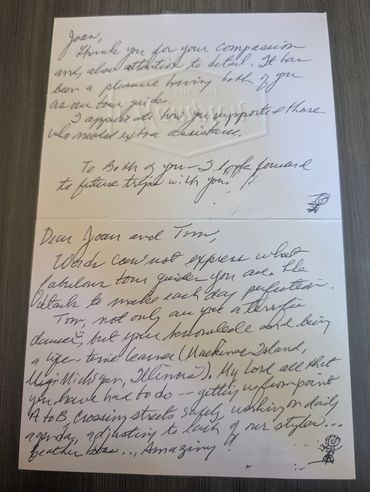 Joan,
Thank you for your compassion
and, also attention to detail. It has
been a pleasure having both of you
as our tour guide.
I appreciate how you supported those
who needed extra assistance.
To Both of you - I look forward
to future trips with you!
Dear Joan and Tom,
Words can not express what
fabulous tour guides you are. The
details to make each day perfection.
Tom, not only are you a terrific
but your knowledge and being
a life time learner (Mackinac Island,
Michigan, Illinois). My Lord all that
you have had to do -- getting us from point
A to B, crossing streets safely, working on daily
agenda, adjusting to each of our styles...
Amazing!